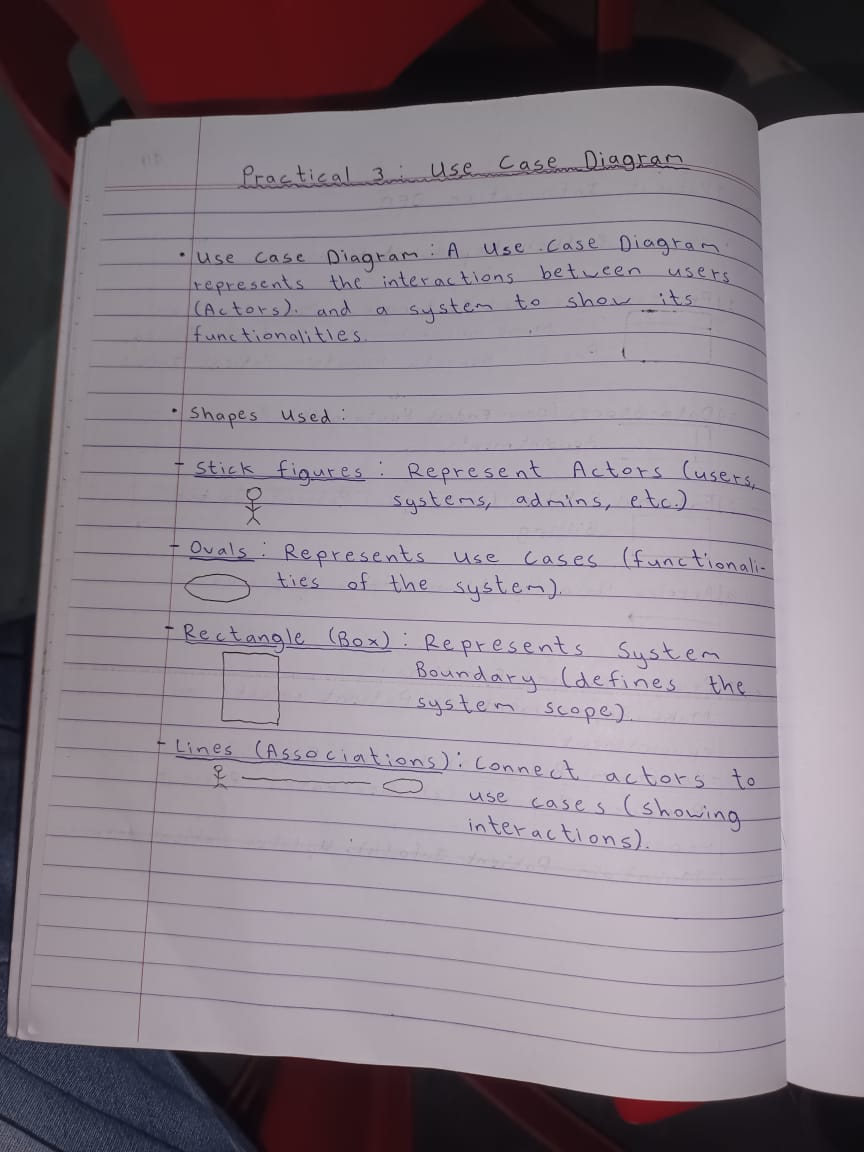 Practical 3: Use Case Diagram
• Use Case Diagram: A Use Case Diagram
represents the interactions between users
(Actors). and a system to show its
functionalities.
• Shapes Used:
- Stick figures: Represent Actors (users,
systems, admins, etc.)
- Ovals: Represents use cases (functionali-
ties of the system).
- Rectangle (Box): Represents System
Boundary (defines the
system scope).
- Lines (Associations): Connect actors to
use cases (showing
interactions).